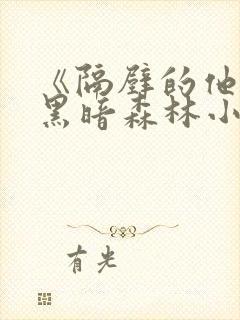 《隔壁的他
黑暗森林小
有光